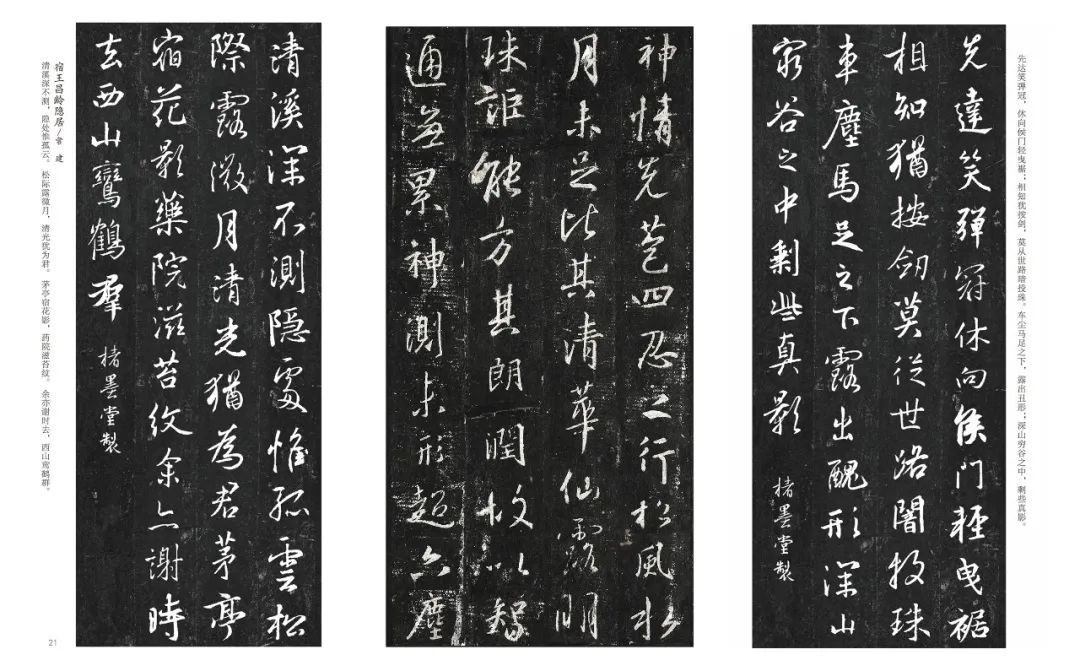 先达笑弹冠，休向侯门轻曳裾；相知犹按剑，莫从世路暗投珠。车尘马足之下，露出丑形；深山穷谷之中，剩些真影。
先達笑彈冠休向侯門輕曳裾
相知猶按劒莫從世路闇投珠
車塵馬足之下露出醜形深山
窮谷之中剩些真影
楮墨堂製
神情先苞四忍之行松風水
月未足比其清華仙露明
珠詎能方其朗潤故以智
通無累神測未形超六塵
清溪深不測隱處惟孤雲松
際露微月清光猶為君茅亭
宿花影藥院滋苔紋余亦謝時
去西山鸞鶴羣
楮墨堂製
宿王昌龄隐居/常 建
清溪深不测，隐处惟孤云。松际露微月，清光犹为君。茅亭宿花影，药院滋苔纹。余亦谢时去，西山鸾鹤群。
21